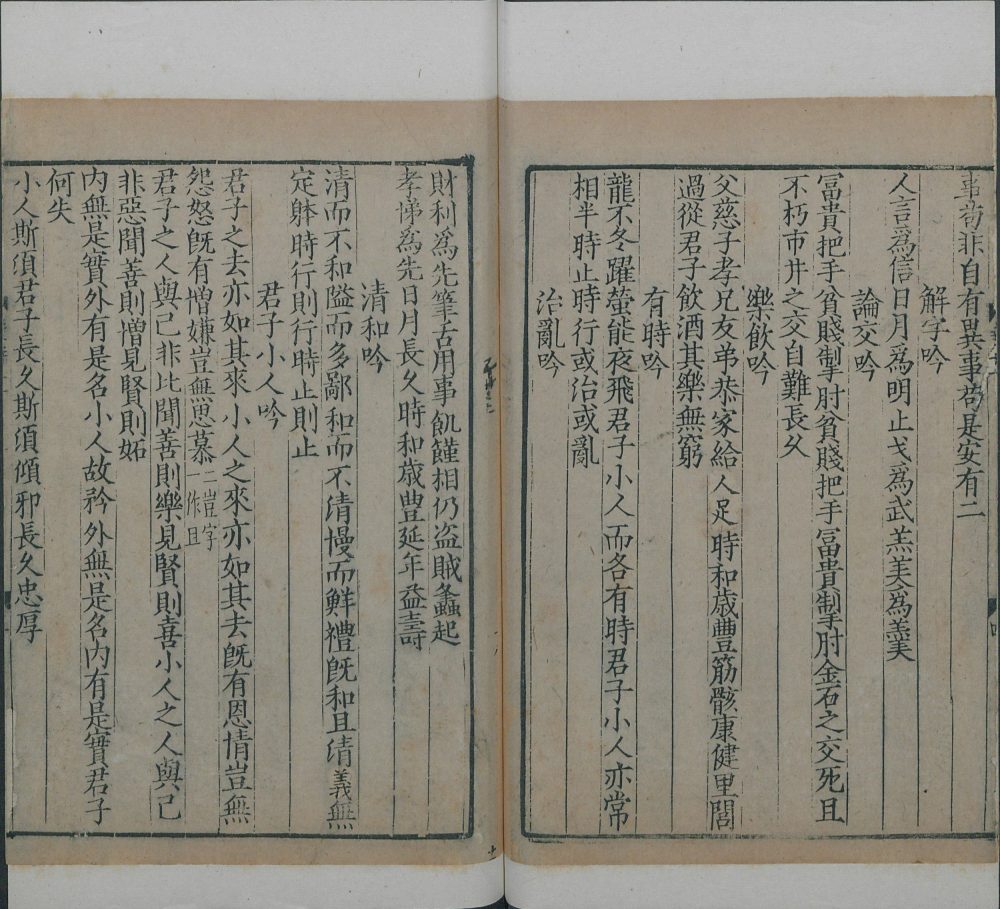 事苟非自有異事苟是安有二
解字吟
人言爲信日月爲明止戈爲武羔美爲羹
論交吟
冨貴把手貧賤掣肘貧賤把手冨貴掣肘金石之交死且
不朽市井之交自難長久
樂飲吟
父慈子孝兄友弟恭家給人足時和歳豊筋骸康健里閭
過從君子飲酒其樂無窮
有時吟
龍不冬躍螢能夜飛君子小人而各有時君子小人亦常
相半時止時行或治或亂
治亂吟
財利爲先筆舌用事飢饉相仍盗賊蠭起
孝悌爲先日月長久時和歳豊延年益壽
清和吟
清而不和隘而多鄙和而不清慢而鮮禮旣和且清義無
定躰時行則行時止則止
君子小人吟
君子之去亦如其來小人之來亦如其去旣有恩情豈無
怨怒旣有憎嫌豈無思慕二豈字一作且
君子之人與己非比聞善則樂見賢則喜小人之人與己
非惡聞善則憎見賢則妬
内無是實外有是名小人故矜外無是名内有是實君子
何失
小人斯須君子長久斯須傾邪長久忠厚